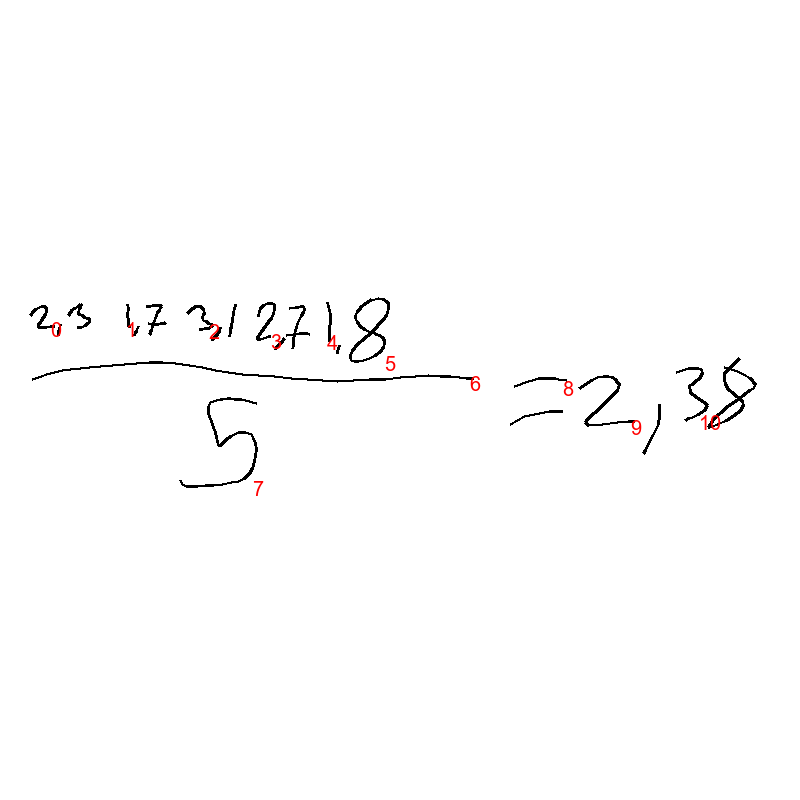 2,3 1,7 3,1 2,7 1,8
5
= 2,38
0 1 2 3 4 5 6 7 8 9 10